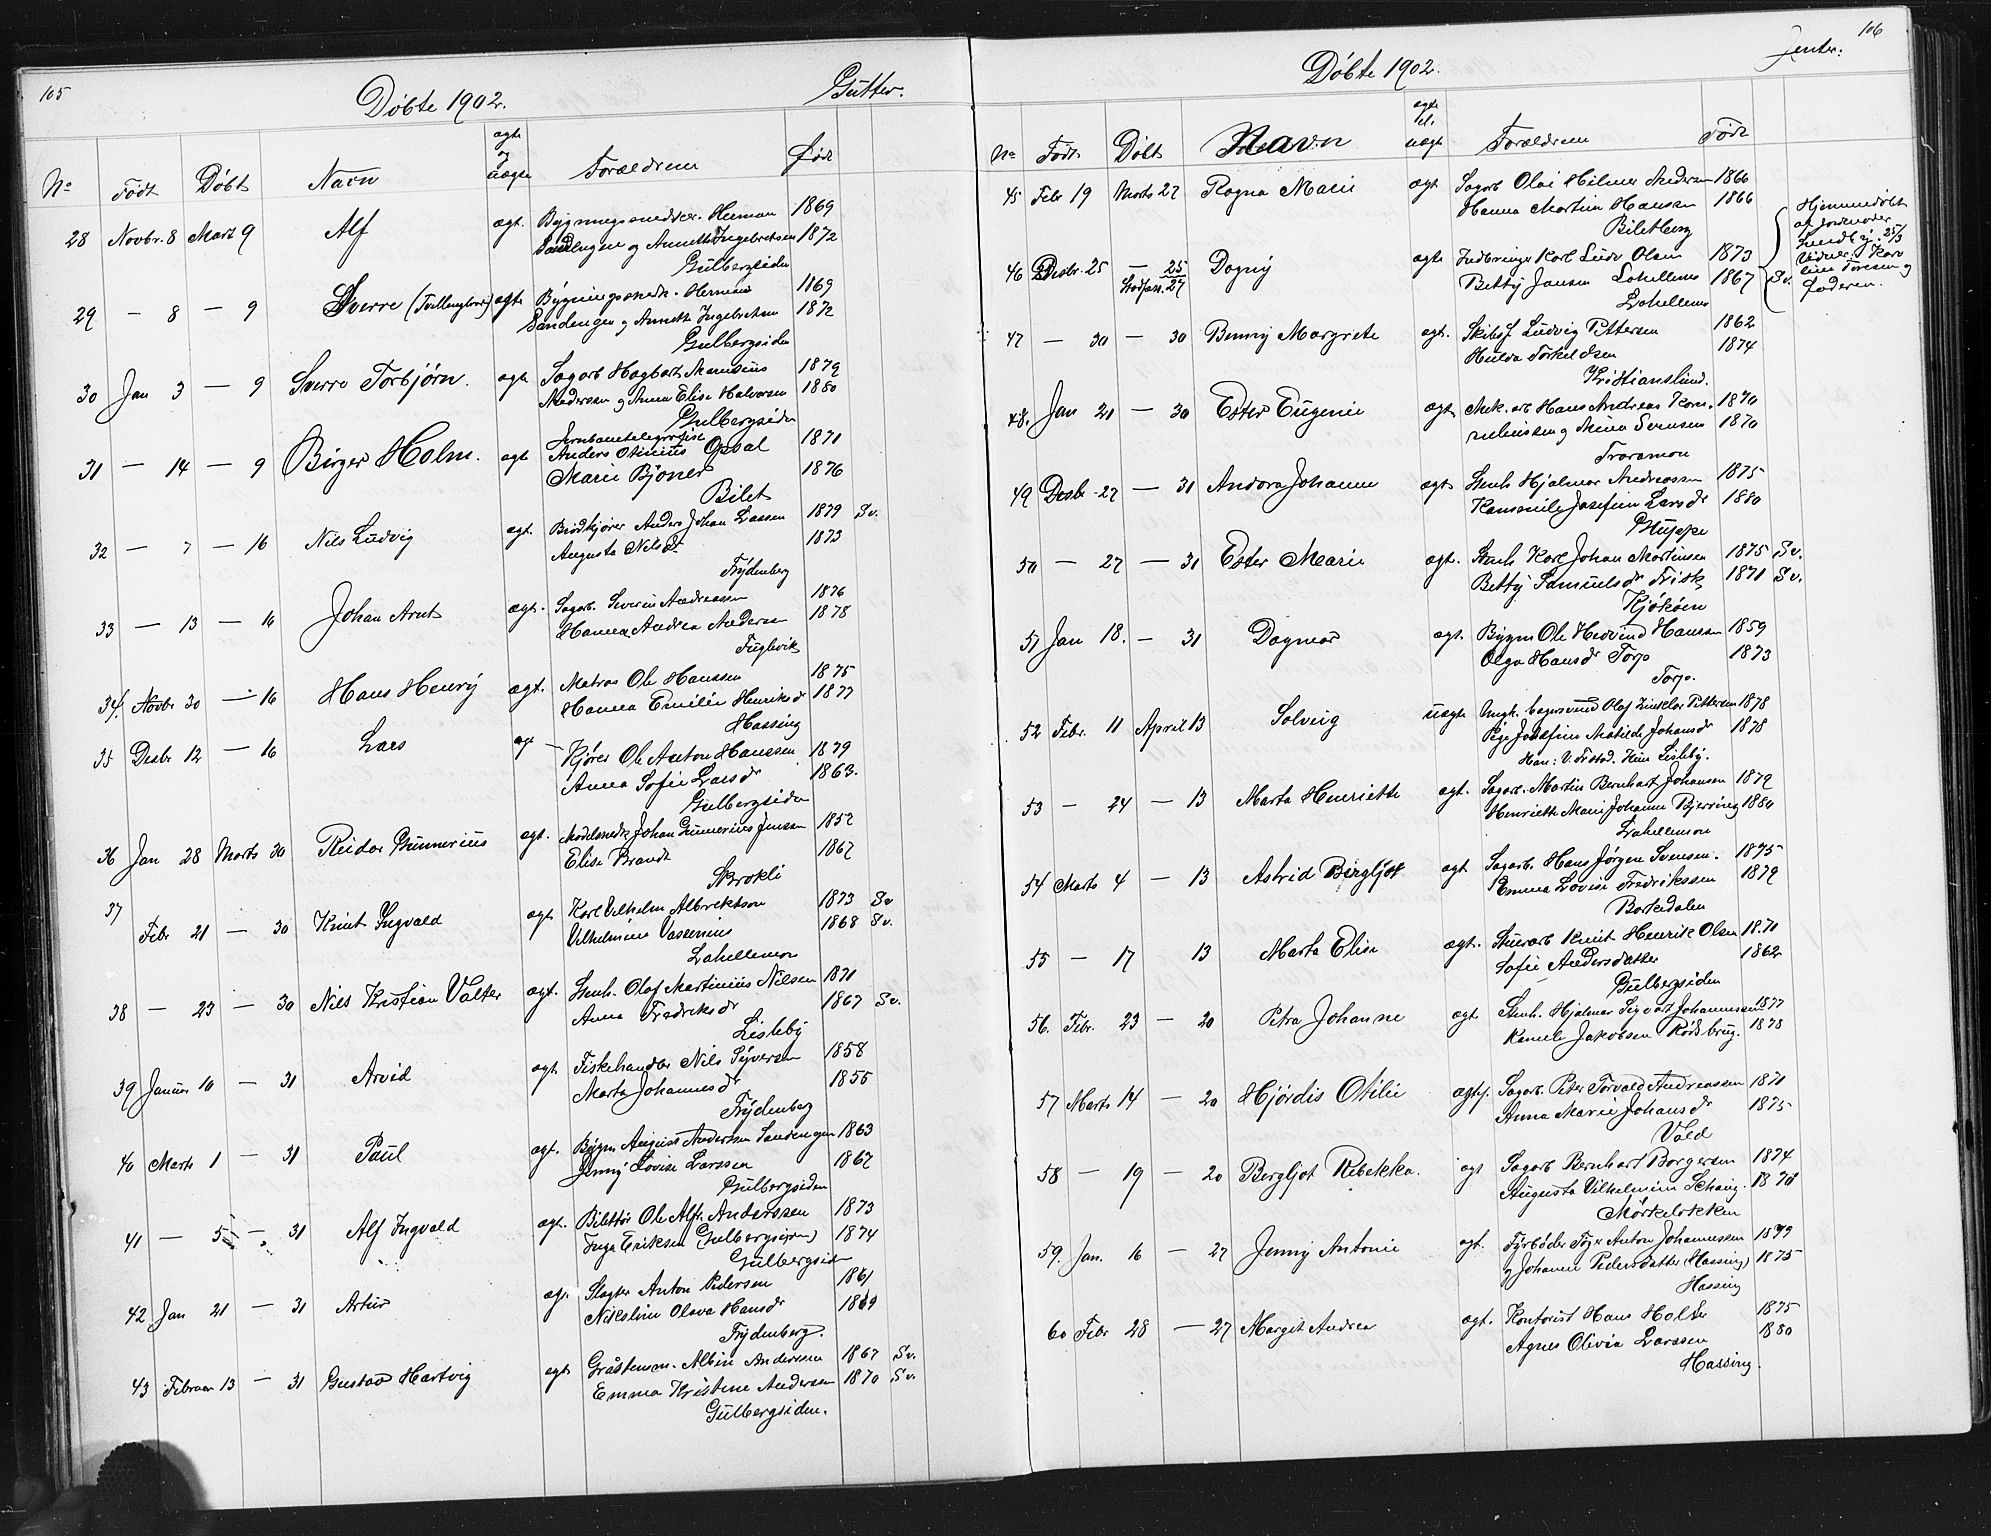 105
Døbte 1902.
Gutter.
No
Født
Døbt
Navn
ægte
og
uægte
Forældrene
Født
28 Novbr. 8 Marz 9 Alf ægt. Bygningssnedker. Herman 1869
Sandengen og Annette Ingebretsen 1872
Gulbergsiden
29 — 8 — 9 Sverre (Tvillingbror) ægte Bygningssnedk. Herman 1869
Sandengen og Annette Ingebretsen 1872
Gulbergsiden
30 Jan 3 — 9 Sverre Torbjørn. ægt. Sagarb Hagbart Marensius 1879
Andersen og Anna Elise Halvorsen 1880
Gulbergsiden
31 — 14 — 9 Birger Holm. ægt Jernbanetelegrafist
Anders Otinius Opsal 1871
Marie Bjoner 1876
Bilet
32 — 7 — 16 Nils Ludvig ægt. Brødkjører Anders Johan Lassen 1879 Sv.
Augusta Nilsdr 1873
Frydenberg
33 — 13 — 16 Johan Arnt ægt. Sagarb. Severin Andreassen 1876
Hanna Andrea Andersen 1878
Fuglevik
34. Novbr 30 — 16 Hans Henry ægt. Matros Ole Hanssen 1875
Hanna Emilie Henriksdr 1877
Hassing
35 Desbr 12 — 16 Lars ægt — Kjører Ole Anton Hanssen 1879
Anna Sofie Larsdr 1863.
Gulbergsiden
36 Jan 28 Marts 30 Reidar Gunnerius ægt. Modelsnedk Johan Gunnerius Jensen 1852
Elise Brandt 1867
Skrokli
37 Febr 21 — 30 Knut Ingvald ægt. Karl Vilhelm Albrektson 1873 Sv
Vilhelmine Vassenius 1868 Sv.
Lahellemoen
38 — 23 — 30 Nils Kristian Valter ægt. Stenh. Olaf Martinius Nilsen 1871
Anna Fredriksdr 1867 Sv.
Lisleby
39 Januar 10 — 31 Arvid ægt. Fiskehandler Nils Syversen 1858
Marta Johannesdr 1855
Frydenberg
40 Marts 1 — 31 Paul ægt. Bygm August Andersen Sandengen 1863
Jenny Lovise Larssen 1867
Gulbergsiden
41 — 5 — 31 Alf Ingvald ægt. Bilettør Ole Alfr. Anderssen 1873
Inga Eriksen (Gulbergsiden) 1874
Gulbergsiden
42 Jan 21 — 31 Artur ægt. Slagter Anton Pedersen 1861
Nikoline Olava Hansdr 1869
Frydenberg.
43 Februar 13 — 31 Gustav Hartvig ægt Gråstensm. Albin Anderssen 1867 Sv.
Emma Kristine Andersen 1870 Sv.
Gulbergsiden.
106
Døbte 1902.
Jenter.
No
Født
Døbt
Navn
ægte
el.
uægt
Forældrene
Født
45 Febr 19 Marts 27 Ragna Marie ægt Sagarb Olai Hilmer Andersen 1866
Hanna Martine Hansen 1866
Biletberg
46 Desbr. 25 — 25 Dagny ægte Indbringer Karl Ludv Olsen 1873
Stadfæst. 27 Betty Jansen Lahellemoen 1867 Sv.
Lahellemoen
Hjemmedøbt
af Jordmoder
Lundby. 25/3
Vidner: Karo
line Toresen og
faderen.
47 — 30 — 30 Benny Margrete ægt. Skibsf. Ludvig Pettersen 1862
Hulda Torkeldsen 1874
Kristianslund.
48. Jan 21 — 30 Ester Eugenie ægt. Mek. arb Hans Andreas Kor- 1870
neliussen og Mina Svensen 1870
Traramoen
49 Desbr. 27 — 31 Andora Johanne ægt. Stenh Hjalmar Andreassen 1875
Kamomile Josefine Larsdr 1880
Gluppe
50 — 27 — 31 Ester Marie ægt. Stenh Karl Johan Martinsen 1875 Sv.
Betty Samuelsdr Frisk 1871 Sv.
Kjøkøen
51 Jan 18. — 31 Dagmar ægt. Bygm Ole Hedvind Hansen 1859
Olga Hansdr Torp 1873
Torp.
52 Febr. 11 April 13 Solveig uægte Ungk. Olaf Sinklar Pettersen 1878
Pige Josefine Matilde Johansdr 1878
Han: V. Fr.stad. Hun Lisleby.
53 — 24 — 13 Marta Henriette ægt. Sagarb. Martin Bernhart Johansen 1872
Henriette Marie Johanne Bjerring 1880
Lahellemoen
54 Marts 4 — 13 Astrid Bergljot ægt Sagarb. Hans Jørgen Svensen. 1875
Emma Lovise Fredrikssen 1879
Borkedalen
55 — 17 13 Marta Elise ægt. Stuerarb Knut Henrik Olsen 1871
Sofie Andersdatter 1862
Gulbergsiden
56. Febr. 23 — 20 Petra Johanne ægt. Stenh. Hjalmar Sigvart Johannessen 1877
Kamile Jakobsen Rødsbrug. 1878
57 Marts 14 — 20 Hjørdis Otilie ægt. Sagarb. Peter Torvald Andreassen 1871
Anna Marie Johansdr 1875
Vold
58 — 19 — 20 Bergljot Rebekka. ægt Sagarb Bernhart Borgersen 1874
Augusta Vilhelmine Schaug. 1878
Mørkeløkken
59. Jan. 16 — 27 Jenny Antonie ægt. Fyrbøder Anton Johannessen 1879
og Johanne Pedersdatter (Hassing) 1875
Hassing
60 Febr 28 — 27 Margit Andrea ægt. Kontorist Hans Holter 1875
Agnes Olivia Larssen 1880
Hassing.